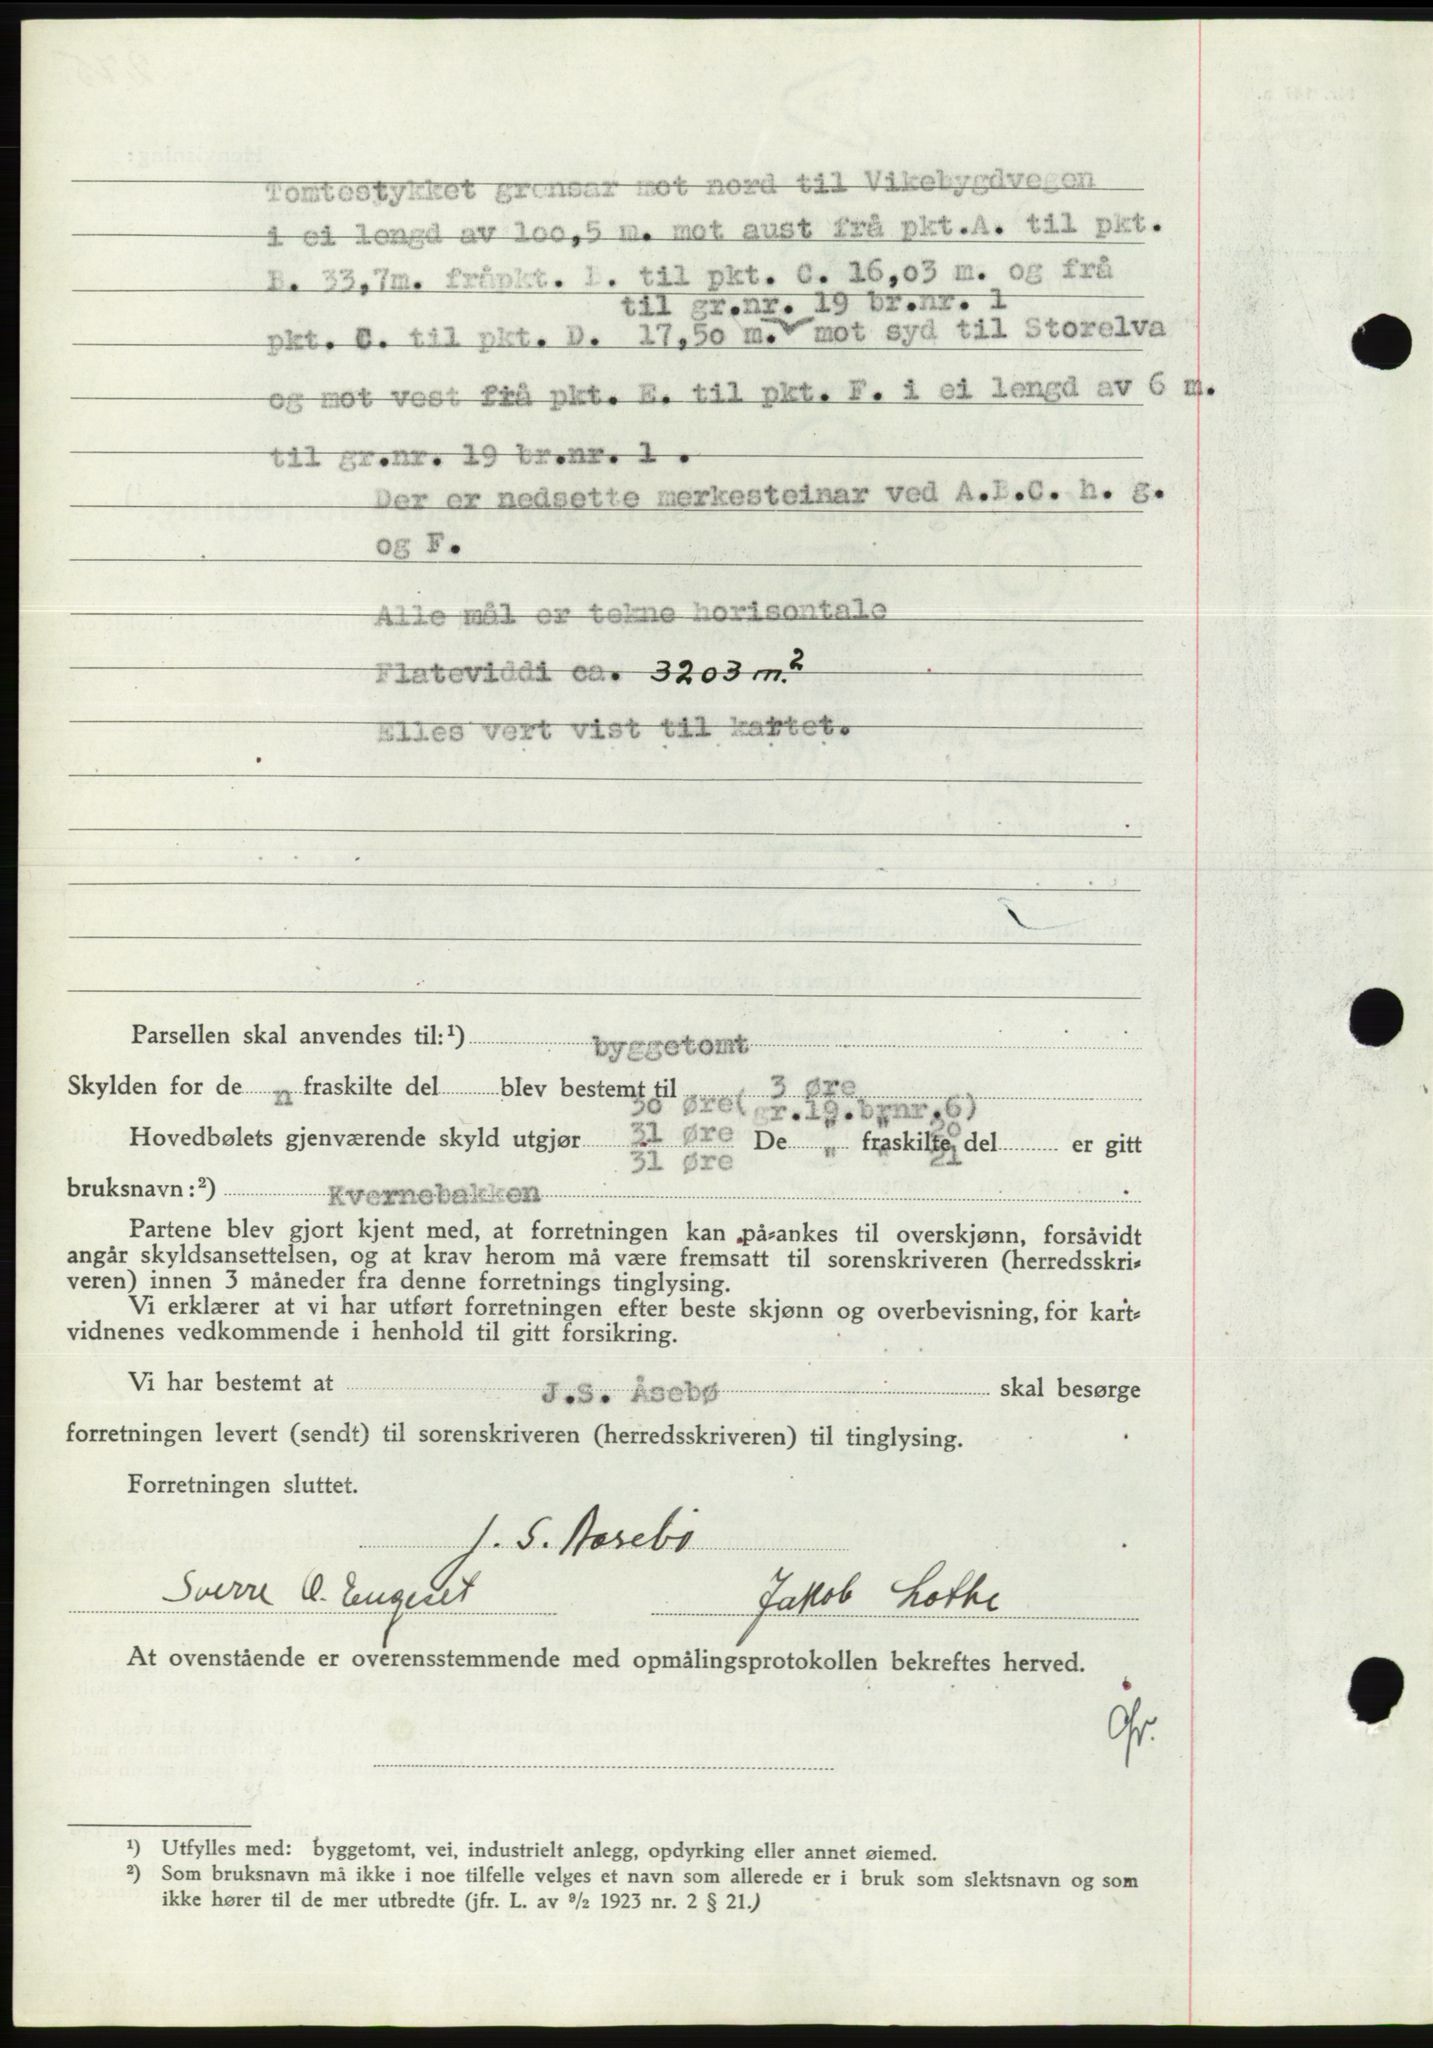 Tomtestykket grensar mot nord til Vikebygdvegen
i ei lengd av 100,5 m. mot aust frå pkt.A. til pkt.
B. 33,7m. fråpkt. B. til pkt. C. 16,03 m. og frå
til gr.nr. 19 br.nr. 1
pkt. C. til pkt. D. 17,50 m. mot syd til Storelva
og mot vest frå pkt. E. til pkt. F. i ei lengd av 6 m.
til gr.nr. 19 br.nr. 1 .
Der er nedsette merkesteinar ved A.B.C. h. g.
og F.
Alle mål er tekne horisontale
Flateviddi ca. 3203 m.²
Elles vert vist til kartet.
Parsellen skal anvendes til:¹) byggetomt
Skylden for de n fraskilte del blev bestemt til 3 Øre
30 Øre( gr.19.brnr.6)
Hovedbølets gjenværende skyld utgjør 31 Øre De " fraskilte " 20 del er gitt
31 Øre " " 21
bruksnavn:²) Kvernebakken
Partene blev gjort kjent med, at forretningen kan på-ankes til overskjønn, forsåvidt
angår skyldsansettelsen, og at krav herom må være fremsatt til sorenskriveren (herredsskri-
veren) innen 3 måneder fra denne forretnings tinglysing.
Vi erklærer at vi har utført forretningen efter beste skjønn og overbevisning, for kart-
vidnenes vedkommende i henhold til gitt forsikring.
Vi har bestemt at J.S. Åsebø skal besørge
forretningen levert (sendt) til sorenskriveren (herredsskriveren) til tinglysing.
Forretningen sluttet.
J. S. Aasebø
Sverre O. Engeset Jakob Lothe
At ovenstående er overensstemmende med opmålingsprotokollen bekreftes herved.
¹) Utfylles med: byggetomt, vei, industrielt anlegg, opdyrking eller annet øiemed.
²) Som bruksnavn må ikke i noe tilfelle velges et navn som allerede er i bruk som slektsnavn og som
ikke hører til de mer utbredte (jfr. L. av ⁹/₂ 1923 nr. 2 § 21.)